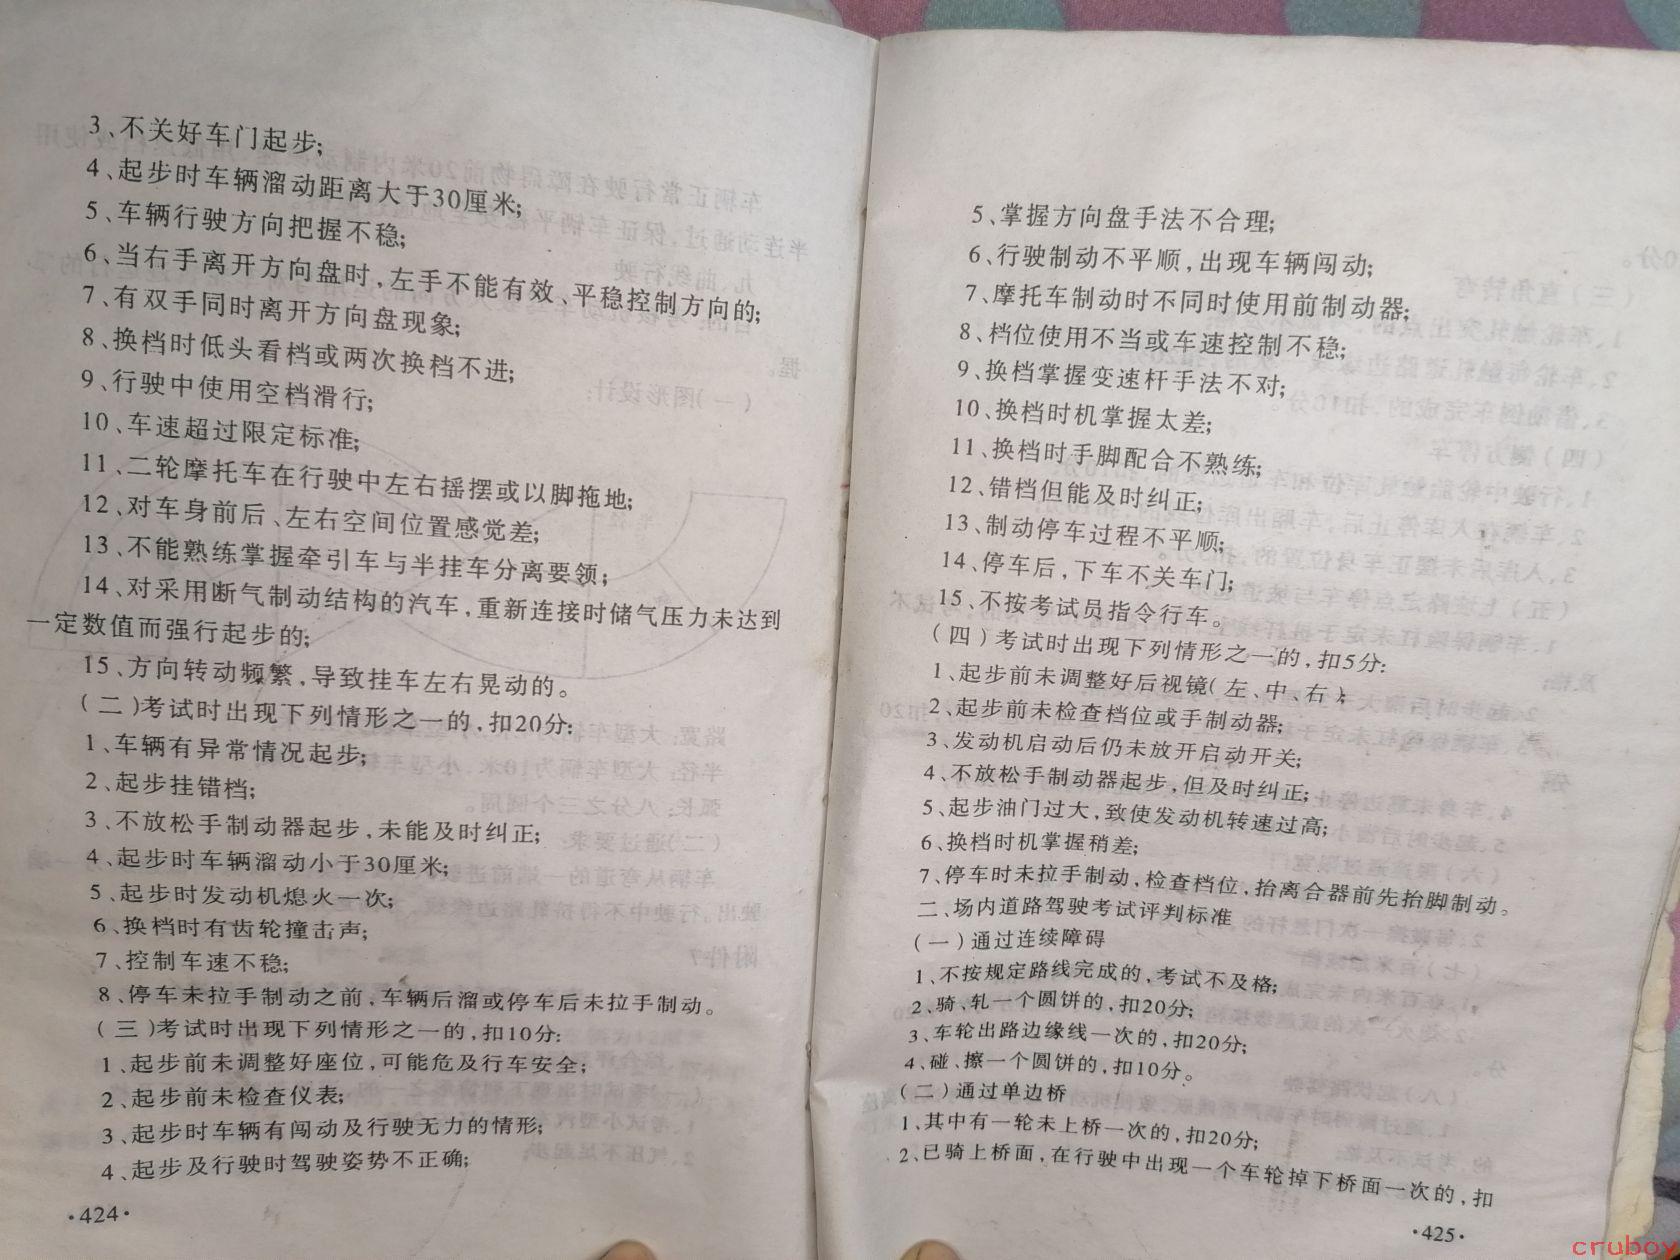 3、不关好车门起步;
4、起步时车辆溜动距离大于30厘米;
5、车辆行驶方向把握不稳;
6、当右手离开方向盘时,左手不能有效、平稳控制方向的;
7、有双手同时离开方向盘现象;
8、换档时低头看档或两次换档不进;
9、行驶中使用空档滑行;
10、车速超过限定标准;
11、二轮摩托车在行驶中左右摇摆或以脚拖地;
12、对车身前后、左右空间位置感觉差;
13、不能熟练掌握牵引车与半挂车分离要领;
14、对采用断气制动结构的汽车,重新连接时储气压力未达到
一定数值而强行起步的;
15、方向转动频繁,导致挂车左右晃动的。
(二)考试时出现下列情形之一的,扣20分:
1、车辆有异常情况起步;
2、起步挂错档;
3、不放松手制动器起步,未能及时纠正;
4、起步时车辆溜动小于30厘米;
5、起步时发动机熄火一次;
6、换档时有齿轮撞击声;
7、控制车速不稳;
8、停车未拉手制动之前,车辆后溜或停车后未拉手制动。
(三)考试时出现下列情形之一的,扣10分:
1、起步前未调整好座位,可能危及行车安全;
2、起步前未检查仪表;
3、起步时车辆有闯动及行驶无力的情形;
4、起步及行驶时驾驶姿势不正确;
·424·
5、掌握方向盘手法不合理;
6、行驶制动不平顺,出现车辆闯动;
7、摩托车制动时不同时使用前制动器;
8、档位使用不当或车速控制不稳;
9、换档掌握变速杆手法不对;
10、换档时机掌握太差;
11、换档时手脚配合不熟练;
12、错档但能及时纠正;
13、制动停车过程不平顺;
14、停车后,下车不关车门;
15、不按考试员指令行车。
(四)考试时出现下列情形之一的,扣5分:
1、起步前未调整好后视镜(左、中、右);
2、起步前未检查档位或手制动器;
3、发动机启动后仍未放开启动开关;
4、不放松手制动器起步,但及时纠正;
5、起步油门过大,致使发动机转速过高;
6、换档时机掌握稍差;
7、停车时未拉手制动,检查档位,抬离合器前先抬脚制动。
二、场内道路驾驶考试评判标准
(一)通过连续障碍
1、不按规定路线完成的,考试不及格;
2、骑、轧一个圆饼的,扣20分;
3、车轮出路边缘线一次的,扣20分;
4、碰、擦一个圆饼的,扣10分。
(二)通过单边桥
1、其中有一轮未上桥一次的,扣20分;
2、已骑上桥面,在行驶中出现一个车轮掉下桥面一次的,扣
·425·
cruboy